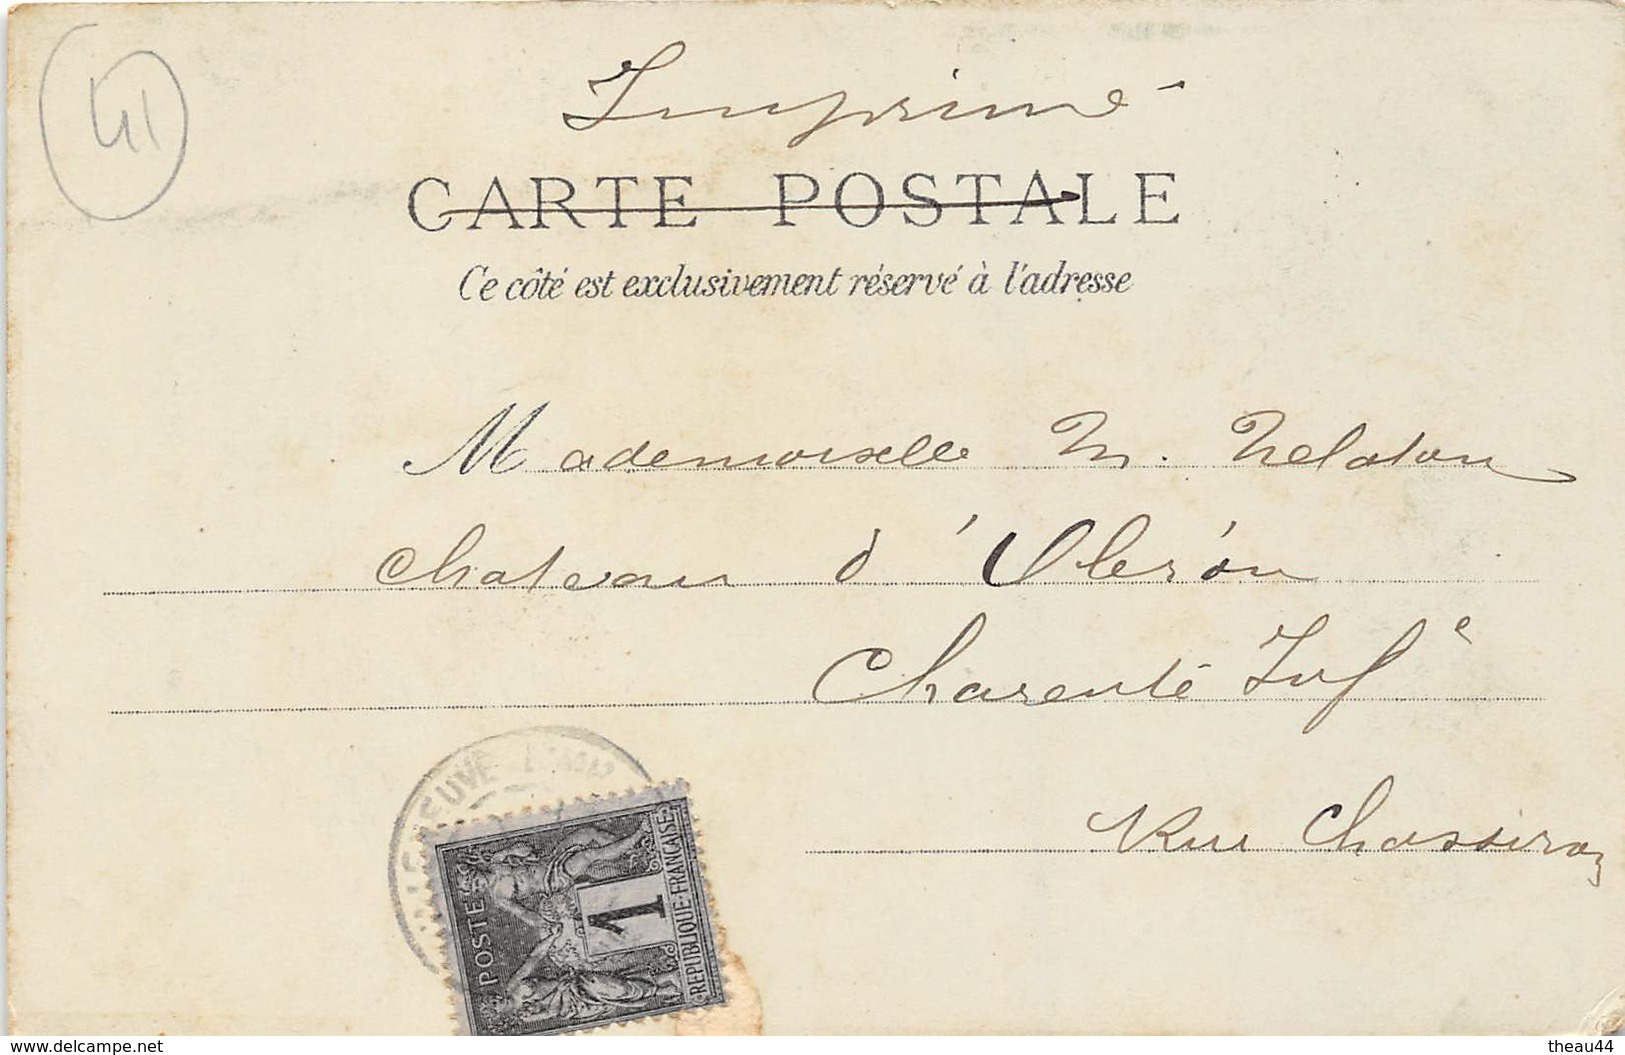 41
Imprimé
CARTE POSTALE
Ce côté est exclusivement réservé à l'adresse
Mademoiselle M. Nelaton
chateau d'Oleron
Charente Inf e
Rue Chassiron
POSTES
1
REPUBLIQUE FRANÇAISE
www.delcampe.net
theau44